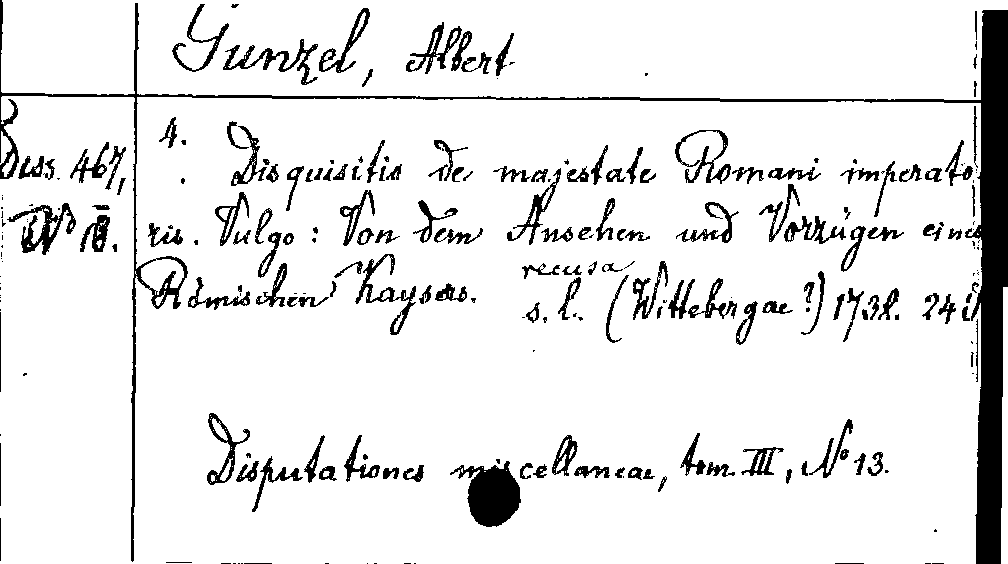 Gunzel, Albert
Diss. 467,
No 13.
4.
Disquisitio de majestate Romani imperato
ris. Vulgo: Von dem Ansehen und Vorzügen eines
Römischen Kaysers. recusa
s. l. (Wittebergae?) 1732. 24 S
Disputationes miscellaneae, tom. III, No 13.